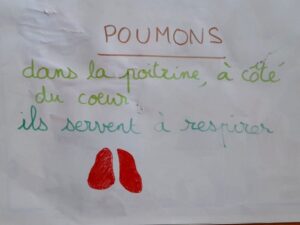 POUMONS
dans la poitrine, à côté
du coeur
ils servent à respirer